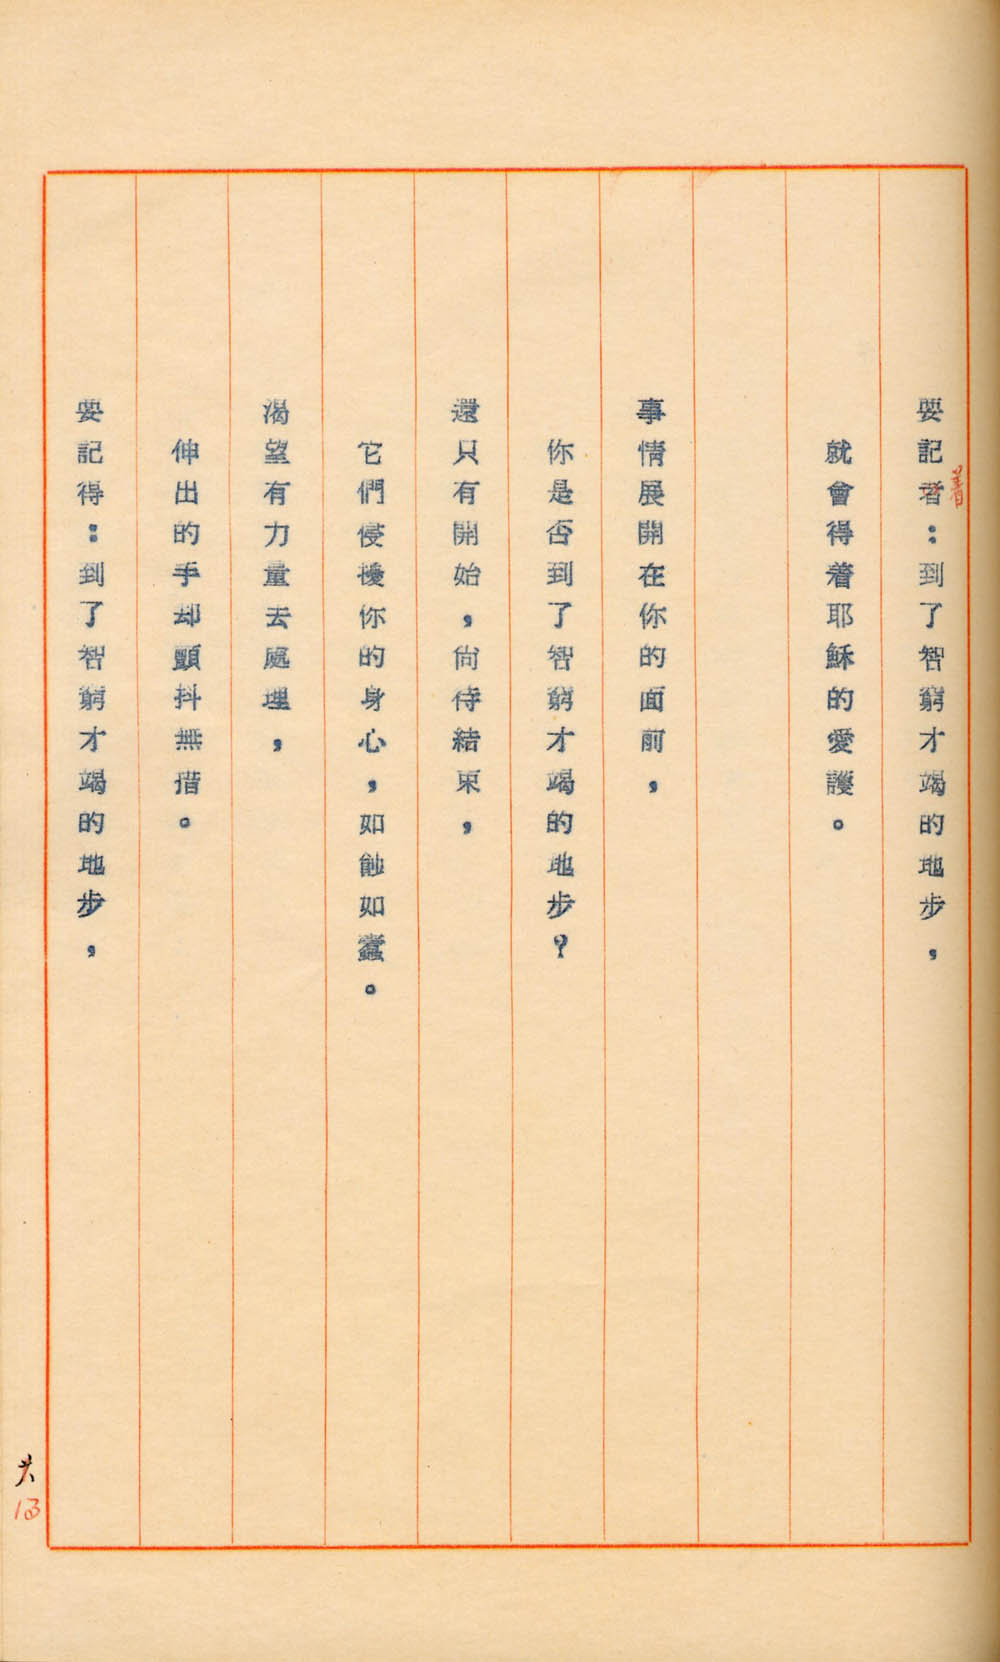 要記者：到了智窮才竭的地步，
着
就會得着耶穌的愛護。
事情展開在你的面前，
你是否到了智窮才竭的地步？
還只有開始，尙待結束，
它們侵擾你的身心，如蝕如蠹。
渴望有力量去處理，
伸出的手却顫抖無措。
要記得：到了智窮才竭的地步，
13